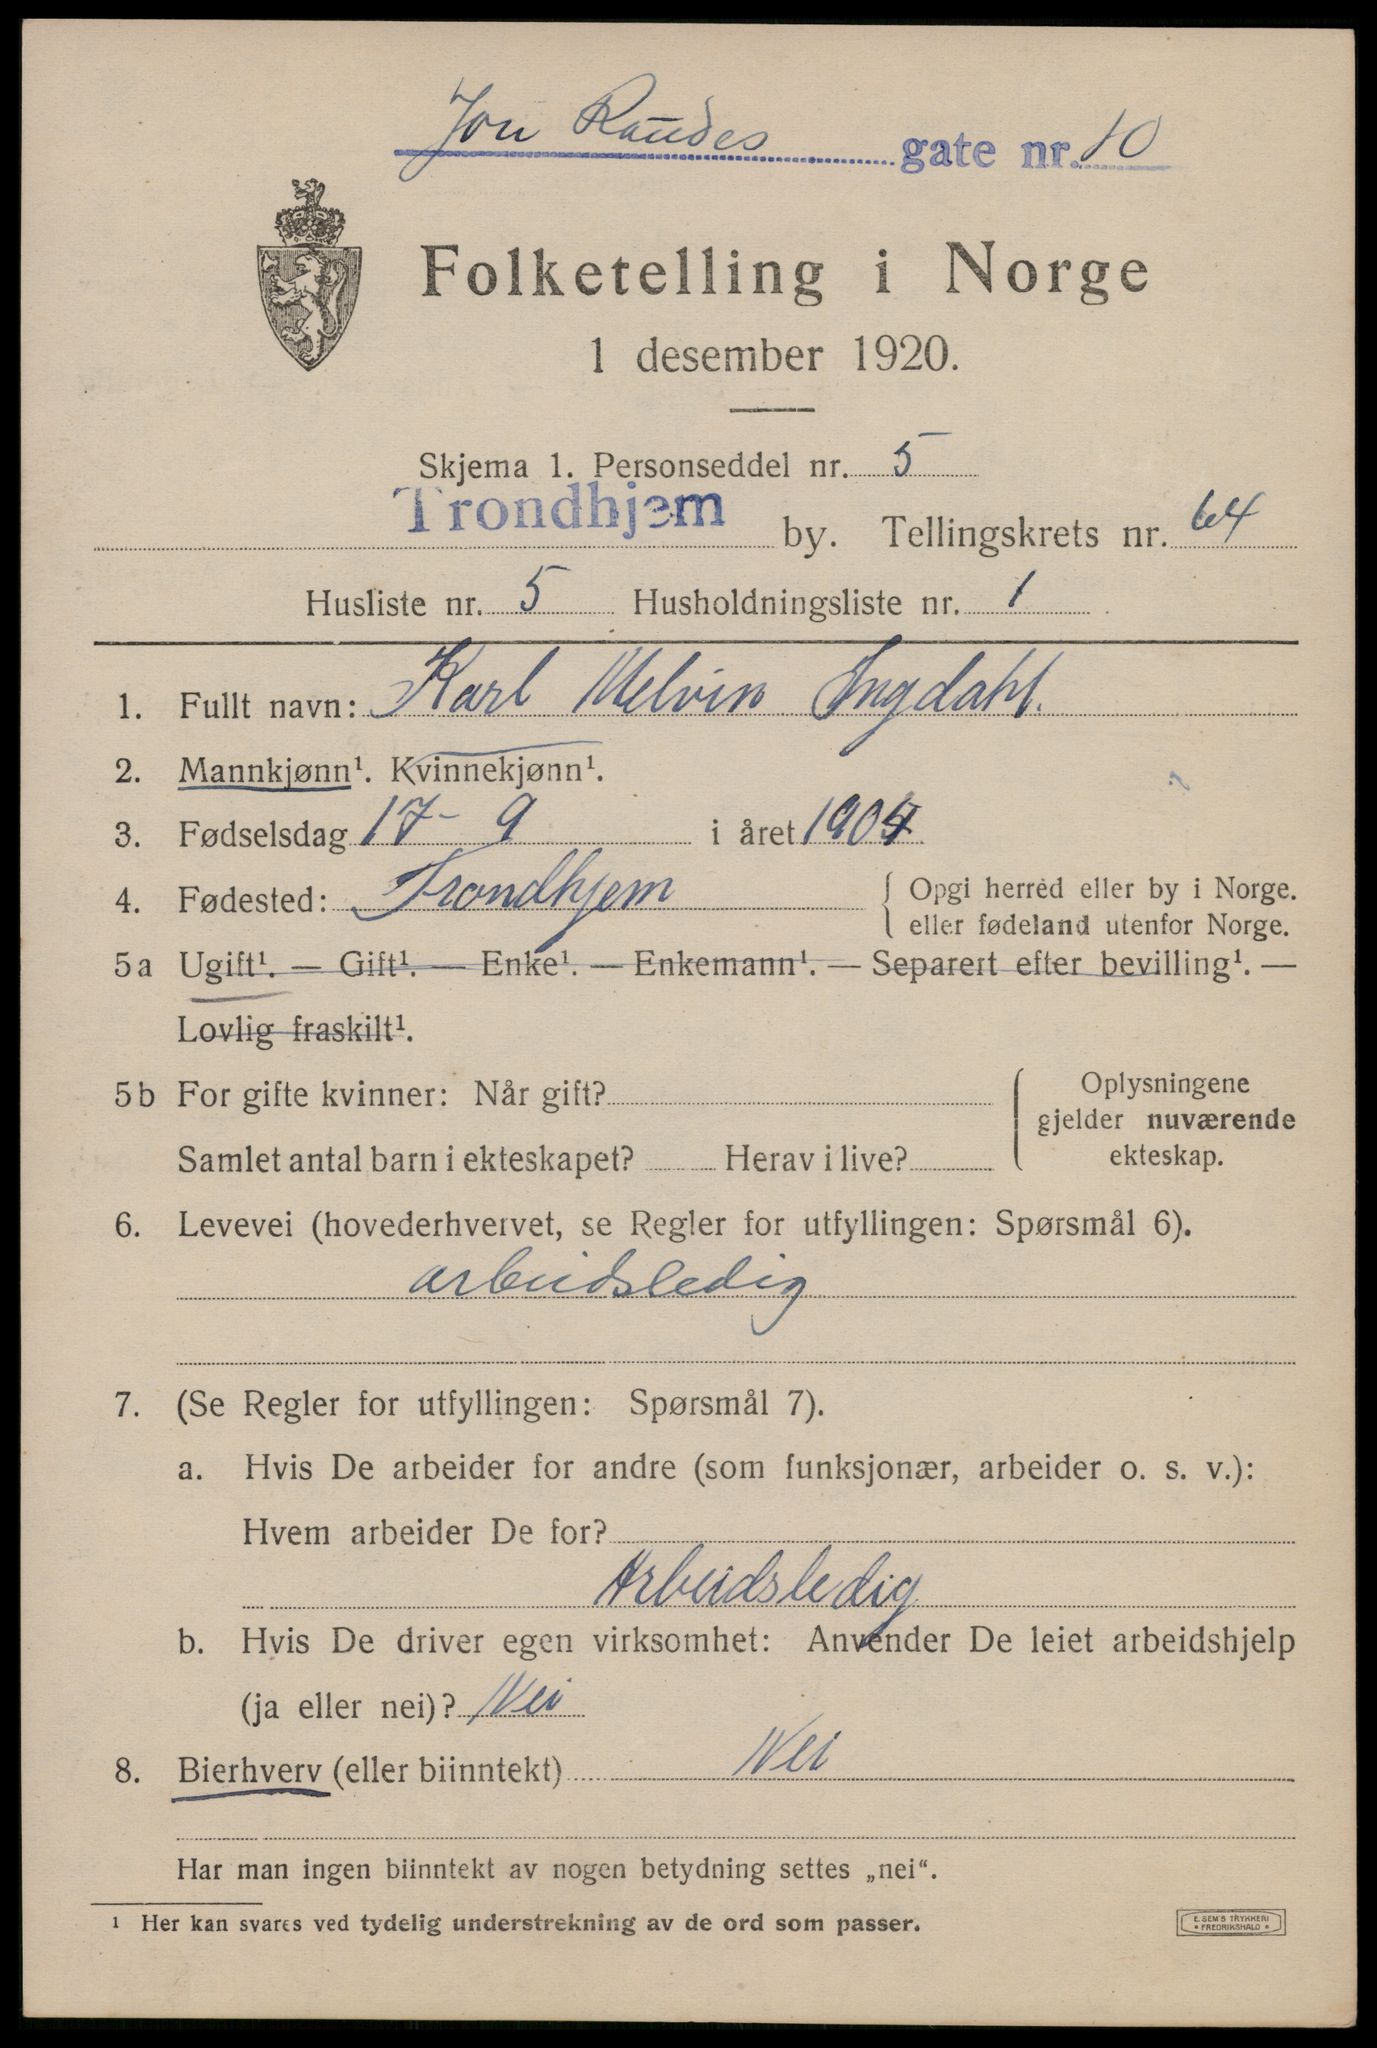 Jon Raudes gate nr. 10
Folketelling i Norge
1 desember 1920.
Skjema 1. Personseddel nr. 5
Trondhjem by. Tellingskrets nr. 64
Husliste nr. 5 Husholdningsliste nr. 1
1. Fullt navn: Karl Melvin Ingdahl.
2. Mannkjønn¹. Kvinnekjønn¹.
3. Fødselsdag 17-9 i året 1904
4. Fødested: Trondhjem { Opgi herred eller by i Norge.
eller fødeland utenfor Norge.
5a Ugift¹. — Gift¹. — Enke¹. — Enkemann¹. — Separert efter bevilling¹. —
Lovlig fraskilt¹.
5b For gifte kvinner: Når gift? Oplysningene
gjelder nuværende
Samlet antal barn i ekteskapet? Herav i live? ekteskap.
6. Levevei (hovederhvervet, se Regler for utfyllingen: Spørsmål 6).
arbeidsledig
7. (Se Regler for utfyllingen: Spørsmål 7).
a. Hvis De arbeider for andre (som funksjonær, arbeider o. s. v.):
Hvem arbeider De for?
Arbeidsledig
b. Hvis De driver egen virksomhet: Anvender De leiet arbeidshjelp
(ja eller nei)? Nei
8. Bierhverv (eller biinntekt) Nei
Har man ingen biinntekt av nogen betydning settes „nei“.
¹ Her kan svares ved tydelig understrekning av de ord som passer.
E. SEM'S TRYKKERI
• FREDRIKSHALD •